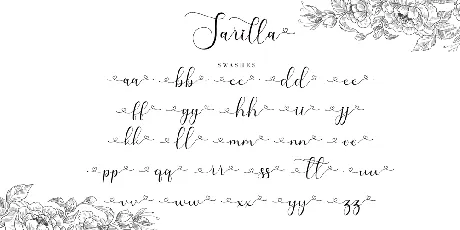 Sarilla
SWASHES
aa bb cc dd ee
ff gg hh ii jj
kk ll mm nn oo
pp qq rr ss tt uu
vv ww xx yy zz